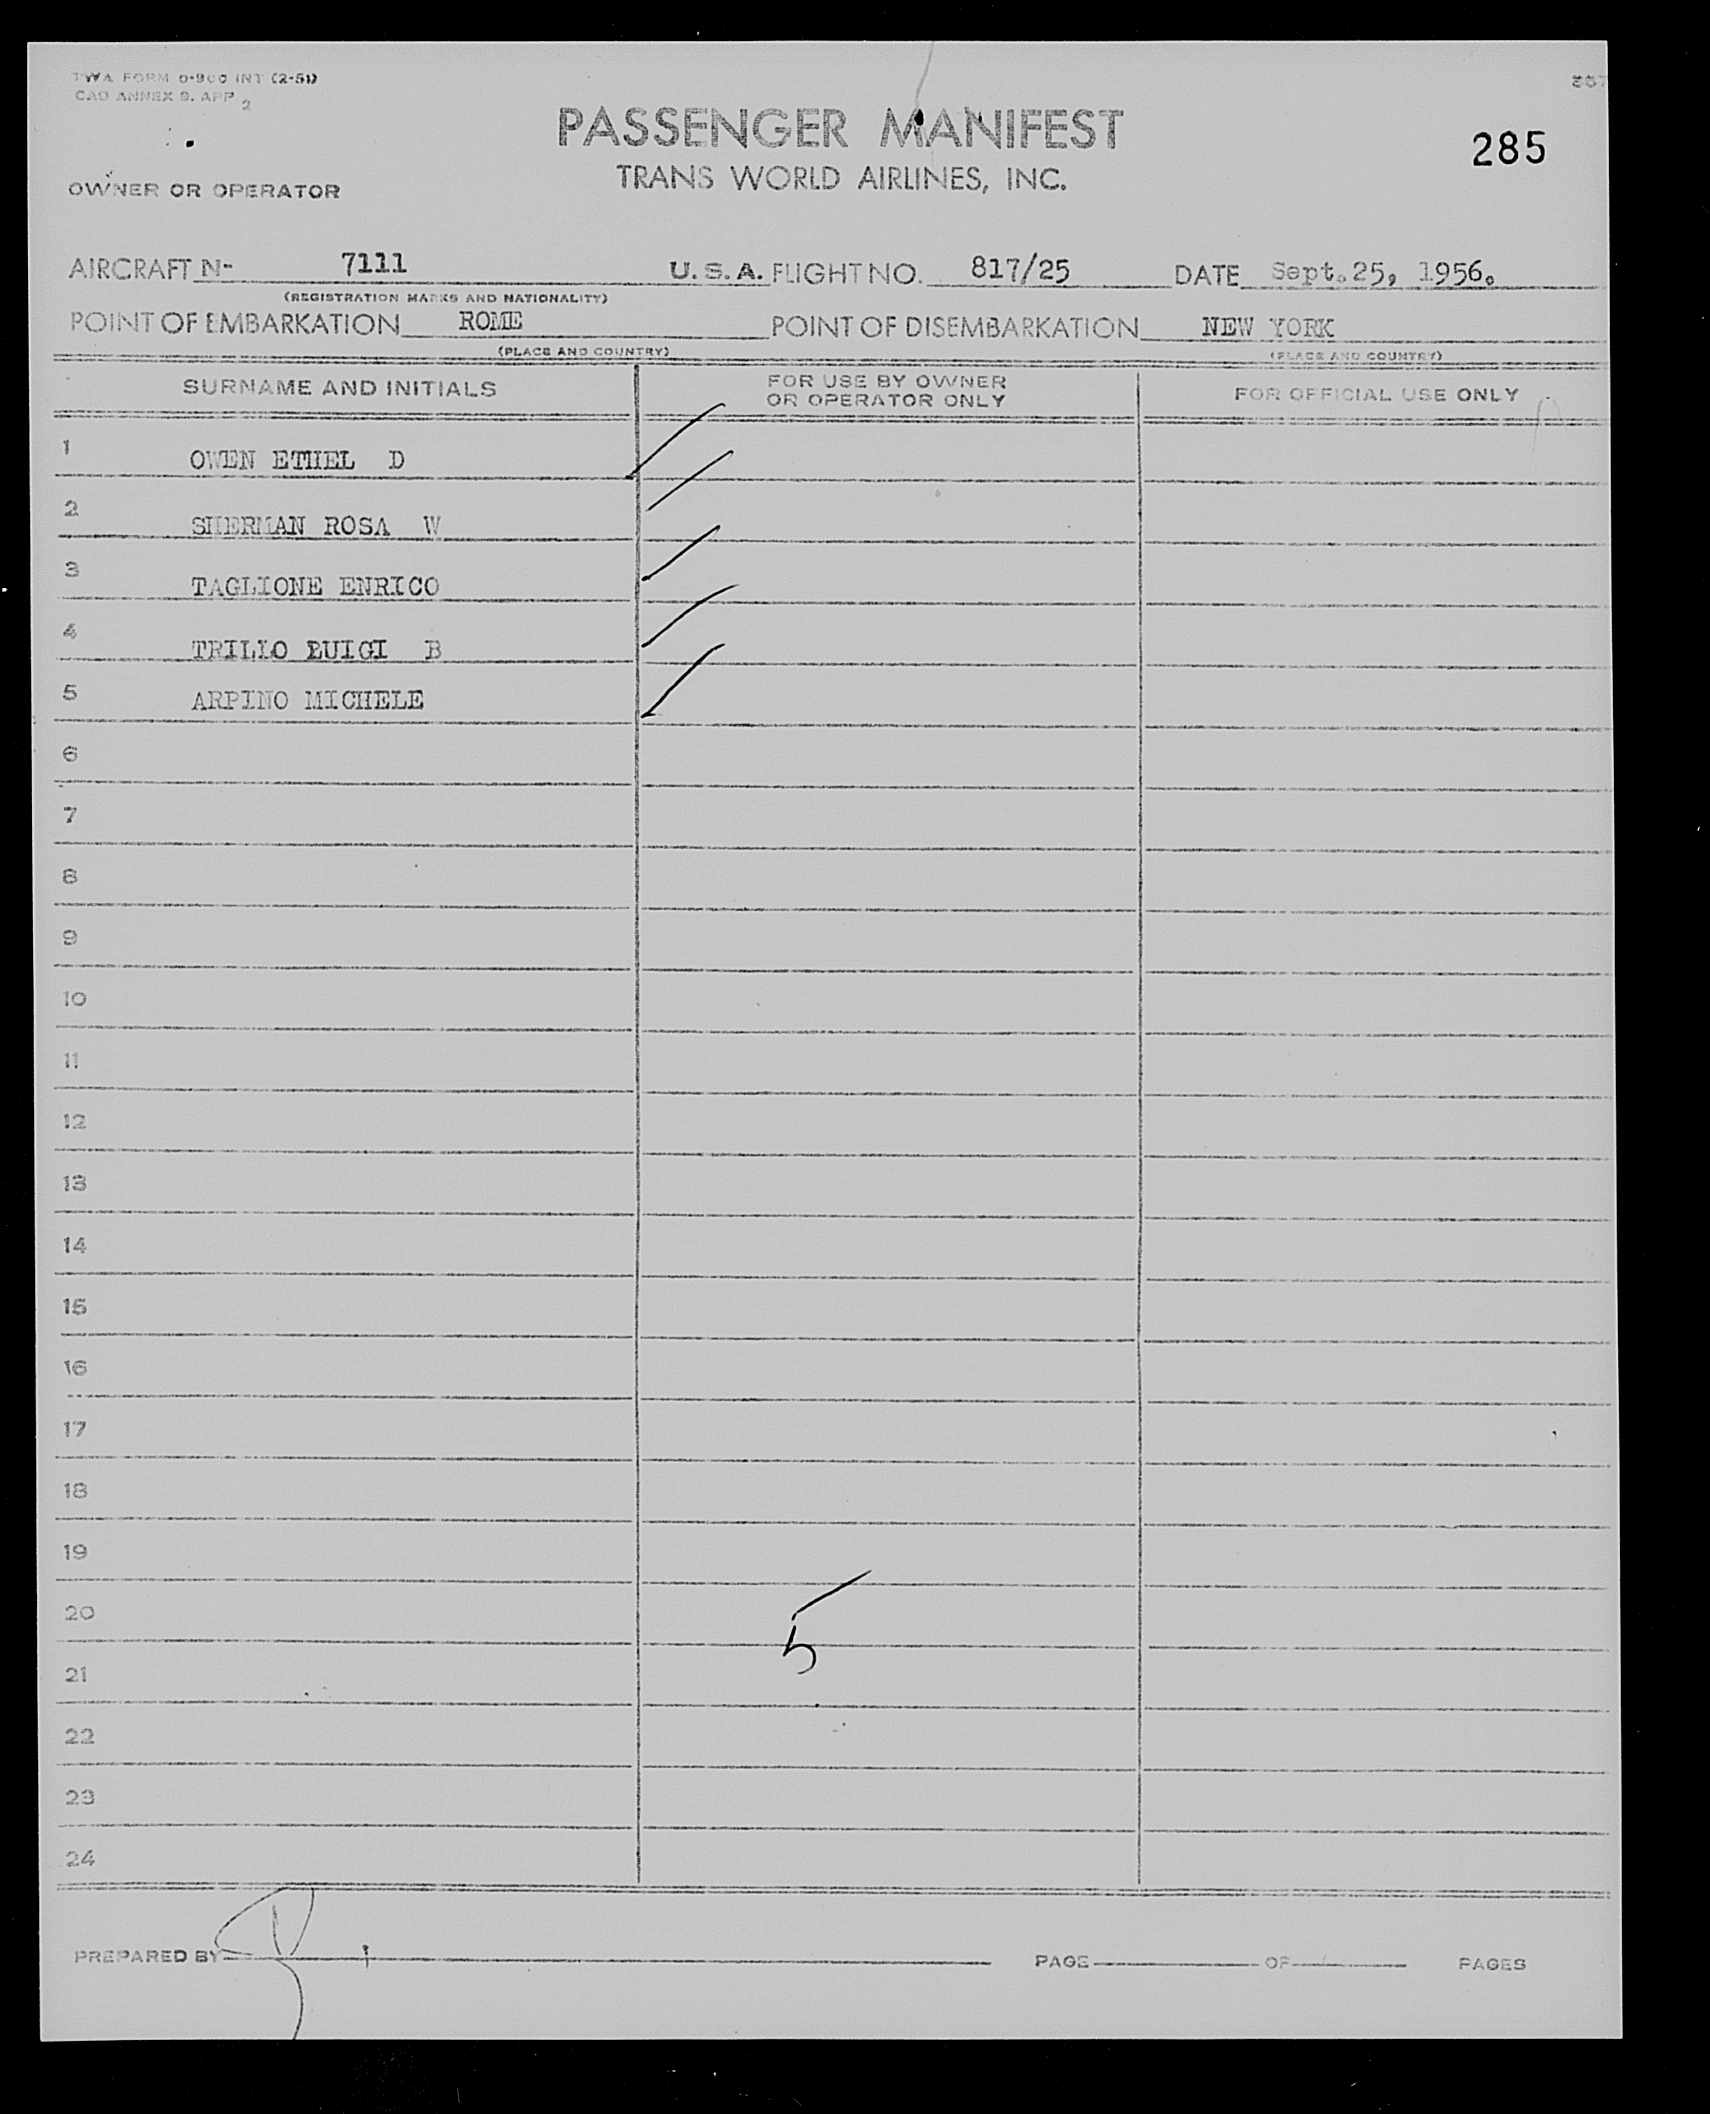 TWA FORM O-900 INT (2-51)
CAO ANNEX 9. APP 2
PASSENGER MANIFEST
285
TRANS WORLD AIRLINES, INC.
OWNER OR OPERATOR
AIRCRAFT N- 7111 U.S.A. FLIGHT NO. 817/25 DATE Sept.25, 1956.
(REGISTRATION MARKS AND NATIONALITY)
POINT OF EMBARKATION ROME POINT OF DISEMBARKATION NEW YORK
(PLACE AND COUNTRY) (PLACE AND COUNTRY)
SURNAME AND INITIALS FOR USE BY OWNER OR OPERATOR ONLY FOR OFFICIAL USE ONLY
1 OWEN ETHEL D
2 SHERMAN ROSA W
3 TAGLIONE ENRICO
4 TRILLO LUIGI B
5 ARPINO MICHELE
6
7
8
9
10
11
12
13
14
15
16
17
18
19
20
5
21
22
23
24
PREPARED BY PAGE OF PAGES